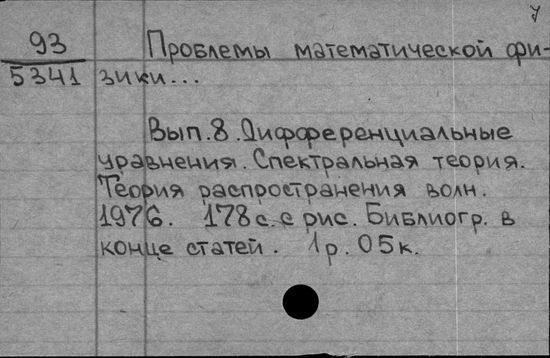 у
93 Проблемы математической фи-
5341 зики...
Вып.8. Дифференциальные
уравнения. Спектральная теория.
Теория распространения волн.
1976. 178 с. с рис. Библиогр. в
конце статей. 1 р. 05 к.